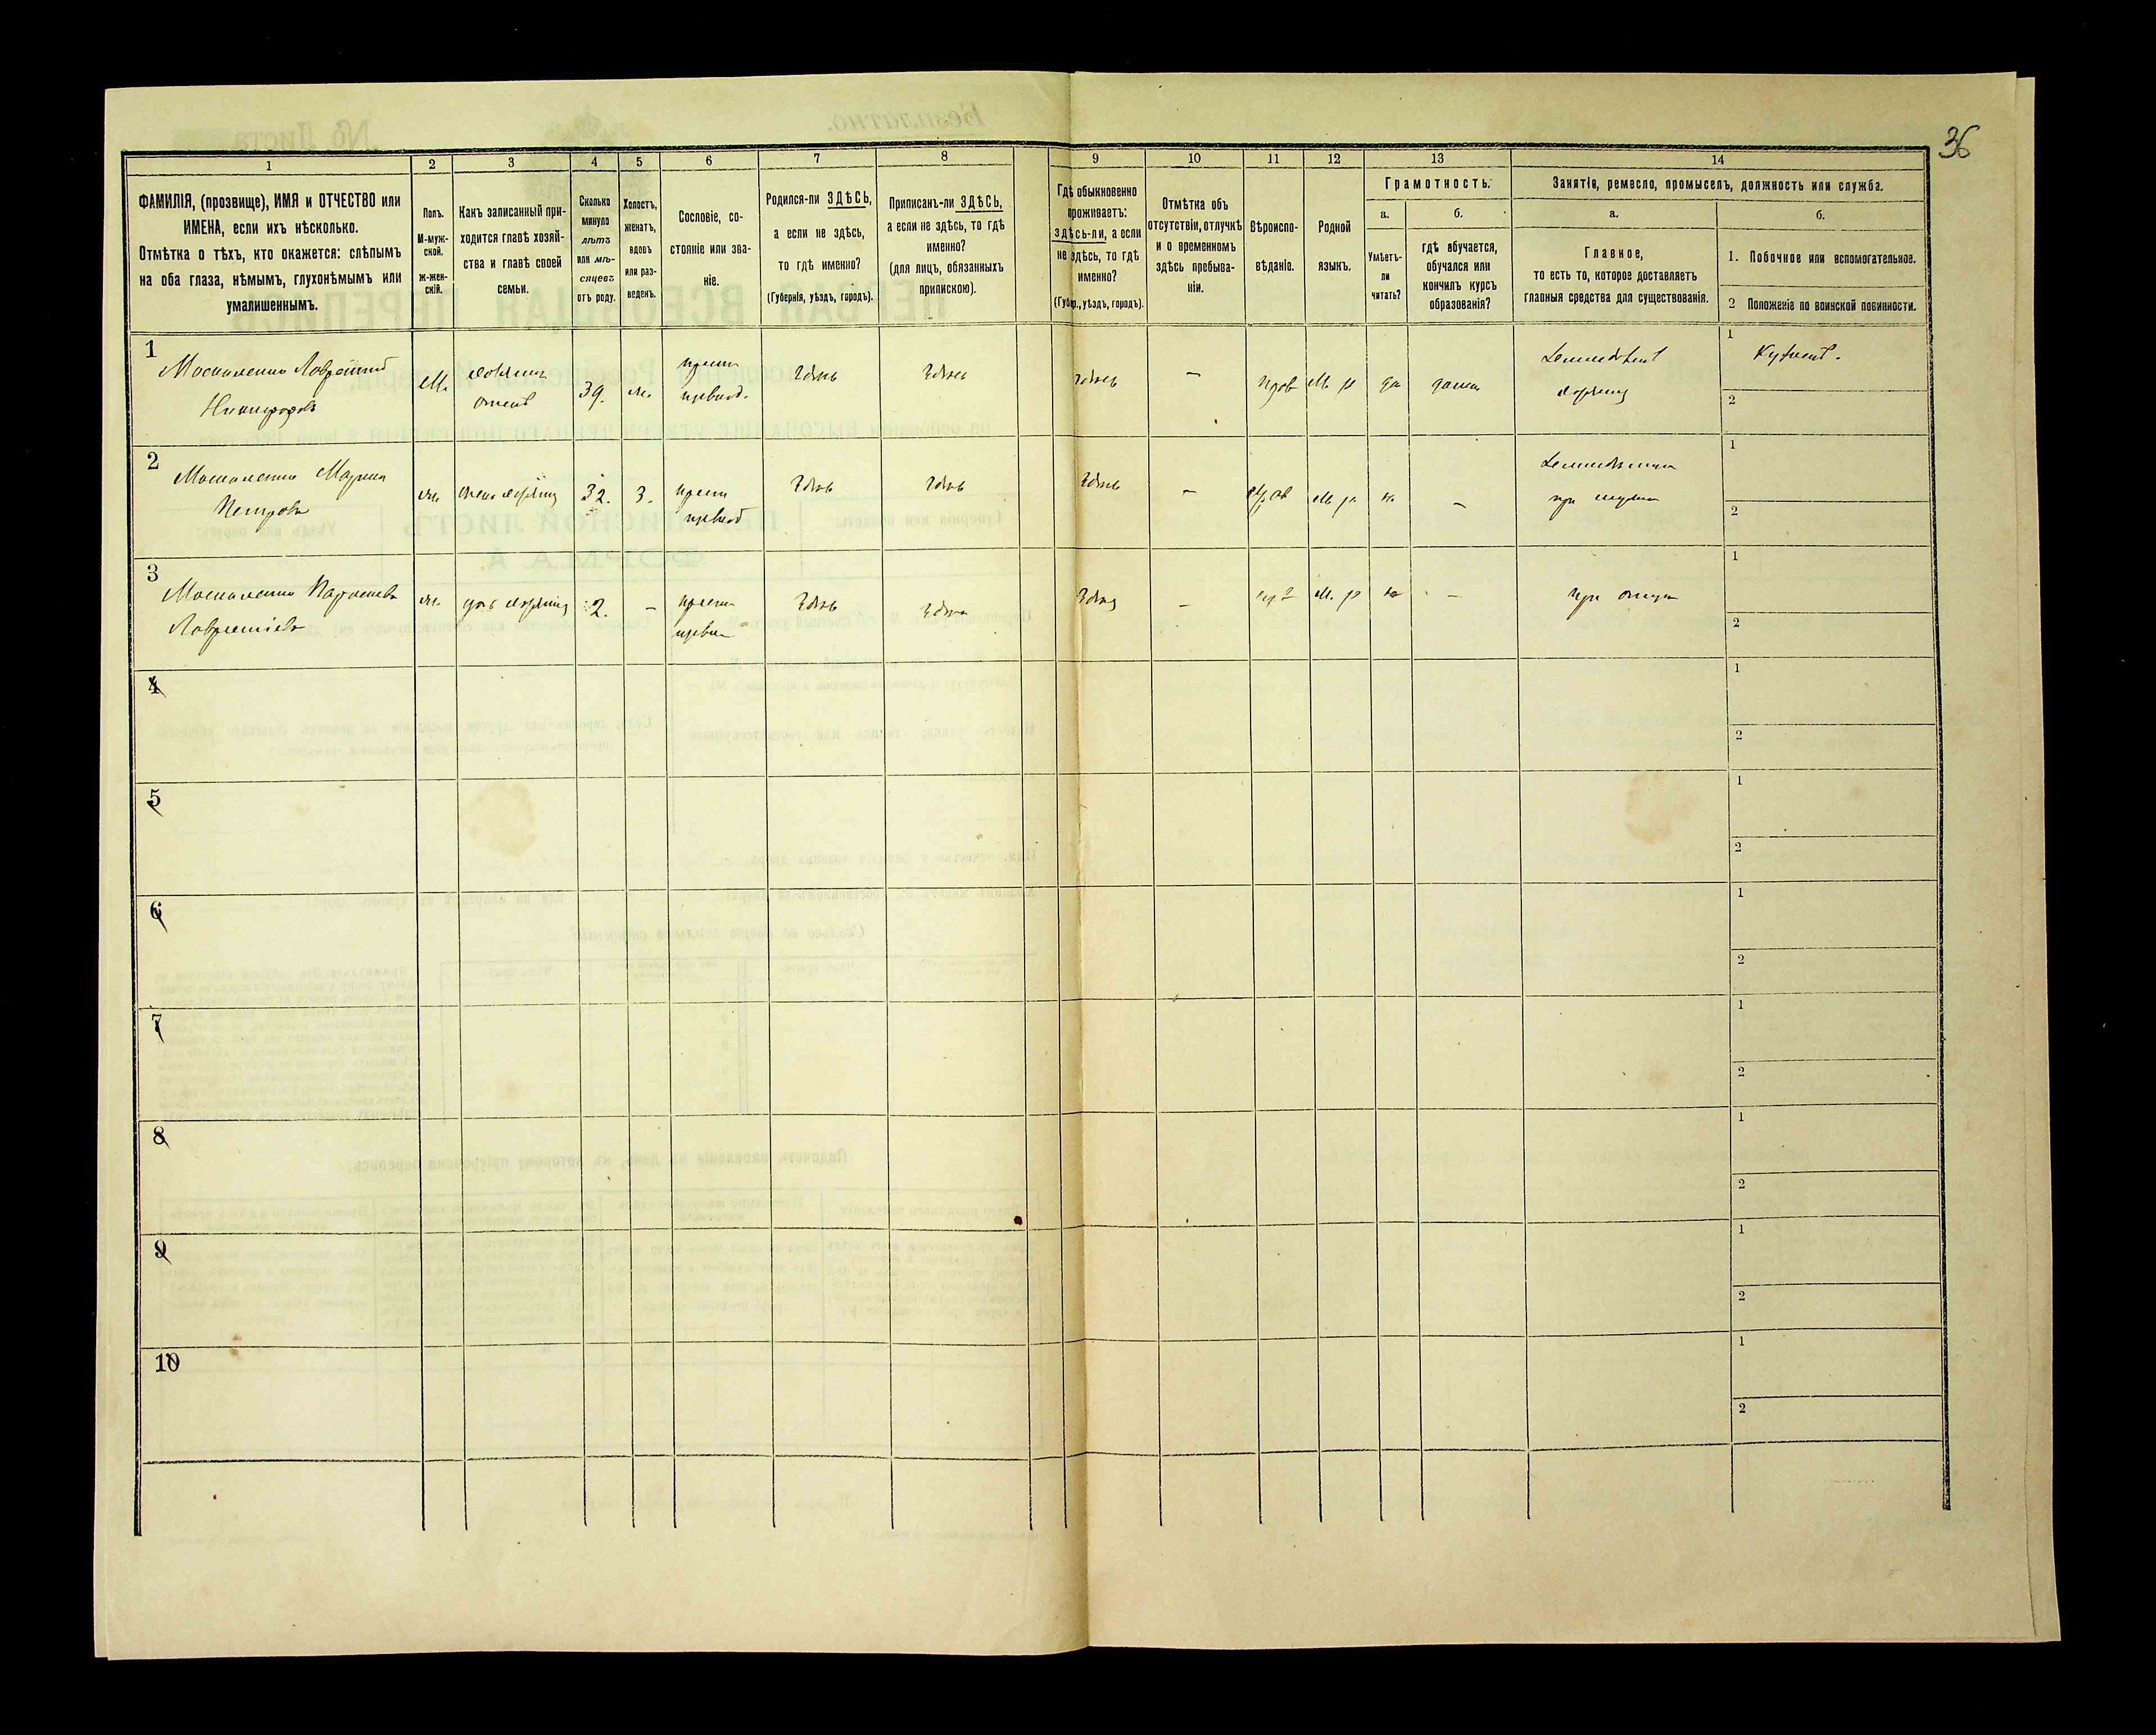 36
1
2
3
4
5
6
7
8
9
10
11
12
13
14
ФАМИЛІЯ, (прозвище), ИМЯ и ОТЧЕСТВО или
ИМЕНА, если ихъ нѣсколько.
Отмѣтка о тѣхъ, кто окажется: слѣпымъ
на оба глаза, нѣмымъ, глухонѣмымъ или
умалишеннымъ.
Полъ.
М-муж-
ской.
Ж-жен-
скій.
Какъ записанный при-
ходится главѣ хозяй-
ства и главѣ своей
семьи.
Сколько
минуло
лѣтъ
или мѣ-
сяцевъ
отъ роду.
Холостъ,
женатъ,
вдовъ
или раз-
веденъ.
Сословіе, со-
стояніе или зва-
ніе.
Родился-ли ЗДѢСЬ,
а если не здѣсь,
то гдѣ именно?
(Губернія, уѣздъ, городъ).
Приписанъ-ли ЗДѢСЬ,
а если не здѣсь, то гдѣ
именно?
(для лицъ, обязанныхъ
припискою).
Гдѣ обыкновенно
проживаетъ:
здѣсь-ли, а если
не здѣсь, то гдѣ
именно?
(Губерн., уѣздъ, городъ).
Отмѣтка объ
отсутствіи, отлучкѣ
и о временномъ
здѣсь пребыва-
ніи.
Вѣроиспо-
вѣданіе.
Родной
языкъ.
Грамотность.
а.
Умѣетъ-
ли
читать?
б.
гдѣ обучается,
обучался или
кончилъ курсъ
образованія?
Занятіе, ремесло, промыселъ, должность или служба.
а.
Главное,
то есть то, которое доставляетъ
главныя средства для существованія.
б.
1. Побочное или вспомогательное.
2 Положеніе по воинской повинности.
1
Москаленко Лаврентій
Никифоровъ
М.
хозяинъ
39.
крест
здѣсь
здѣсь
здѣсь
—
прав
М р
да
дома
хозяинъ
1
2
2
Москаленко Марина
Петрова
жена хозяина
32.
З.
крест
здѣсь
здѣсь
здѣсь
—
прав
М р
—
при мужѣ
1
2
3
Москаленко
Лаврентіева
дочь хозяина
2.
—
здѣсь
здѣсь
здѣсь
—
М. р
—
при отцѣ
1
2
4
1
2
5
1
2
6
1
2
7
1
2
8
1
2
9
1
2
10
1
2